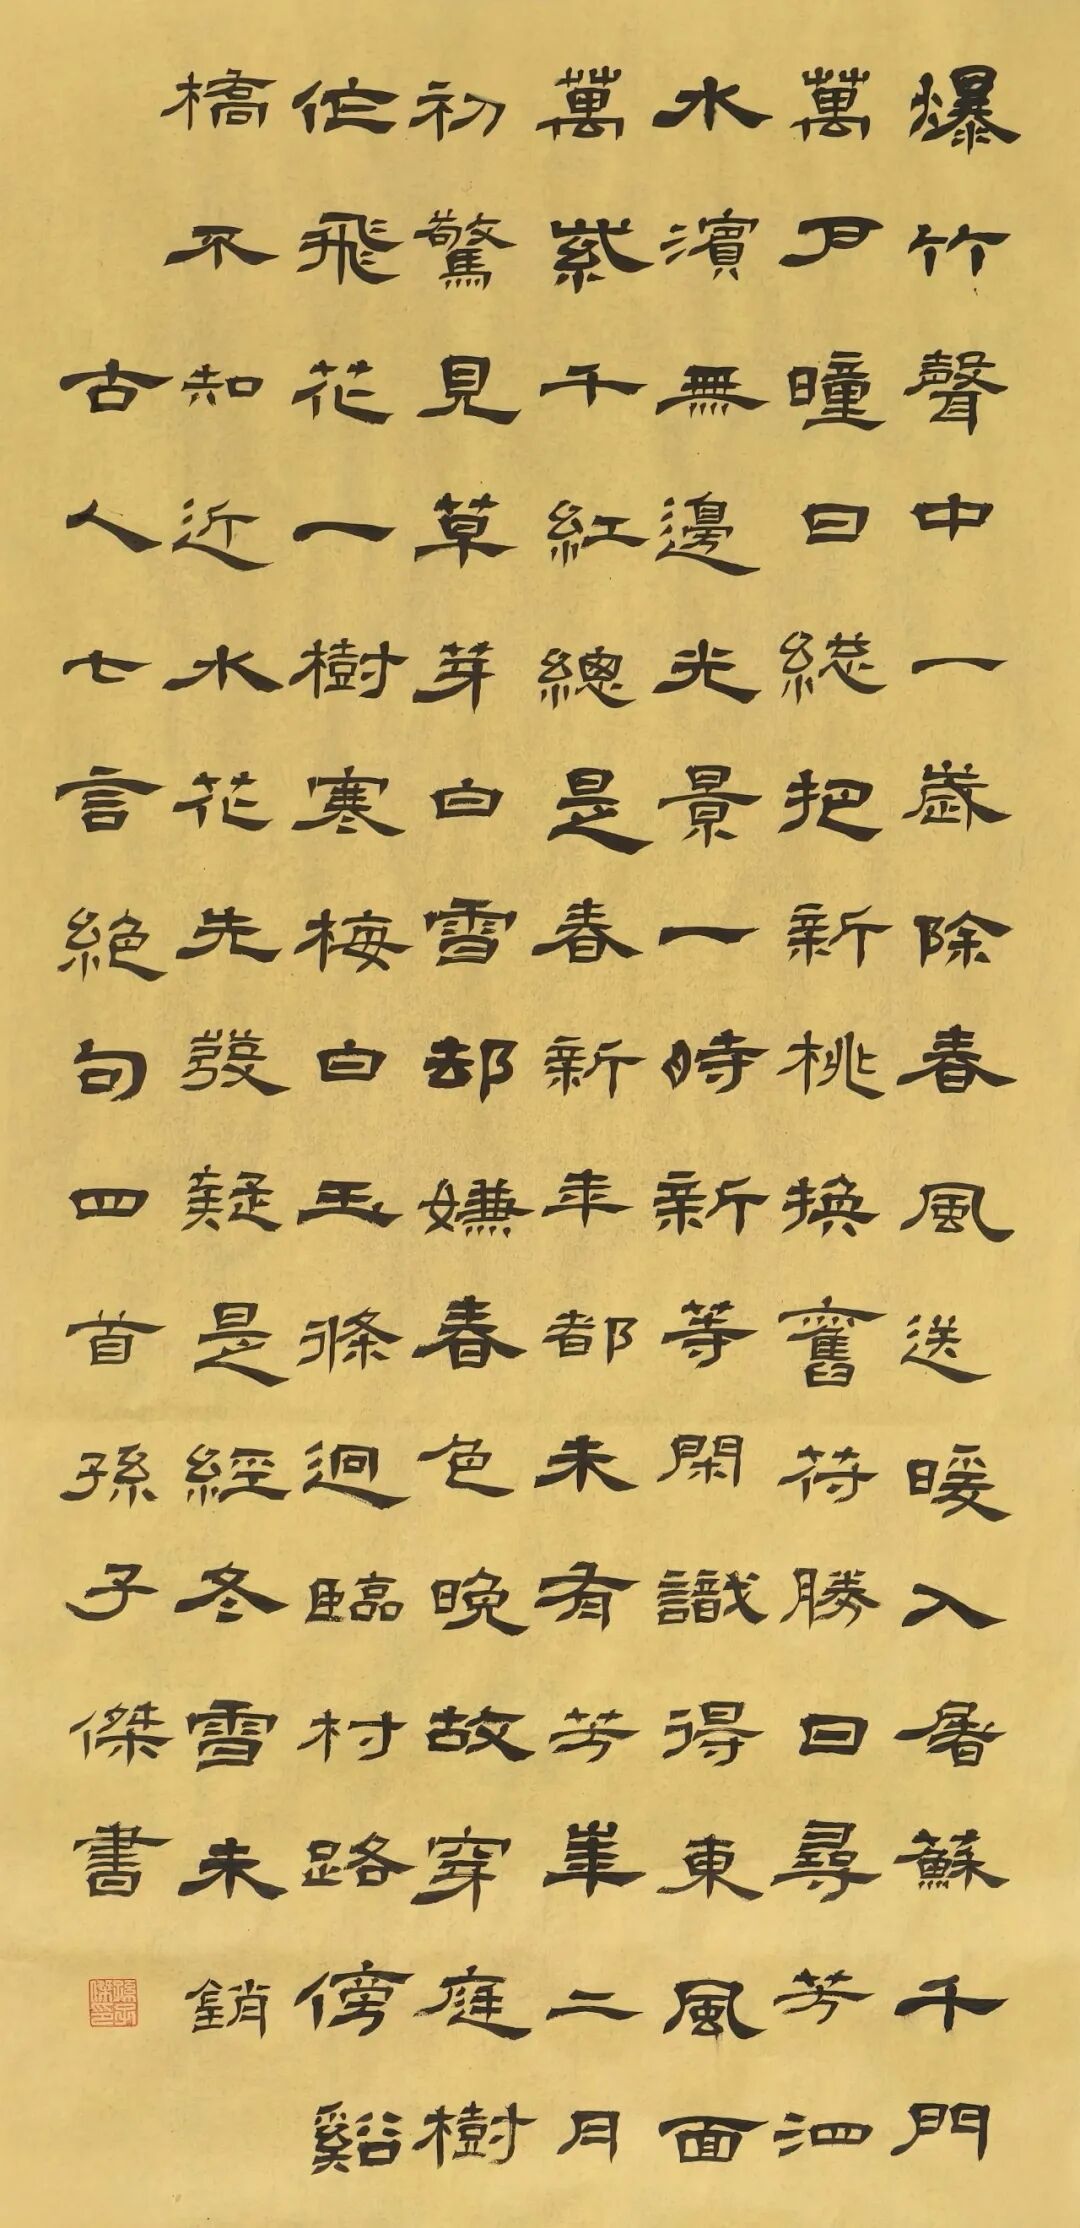 爆竹聲中一歲除春風送暖入屠蘇千門
萬戶曈日緫把新桃換舊符勝日尋芳泗
水濱無邊光景一時新等閑識得東風面
萬紫千紅總是春新年都未有芳華二月
初驚見草芽白雪却嫌春色晚故穿庭樹
作飛花一樹寒梅白玉條迥臨村路傍谿
橋不知近水花先發疑是經冬雪未銷
古人七言絕句四首孫子傑書
孫子傑印